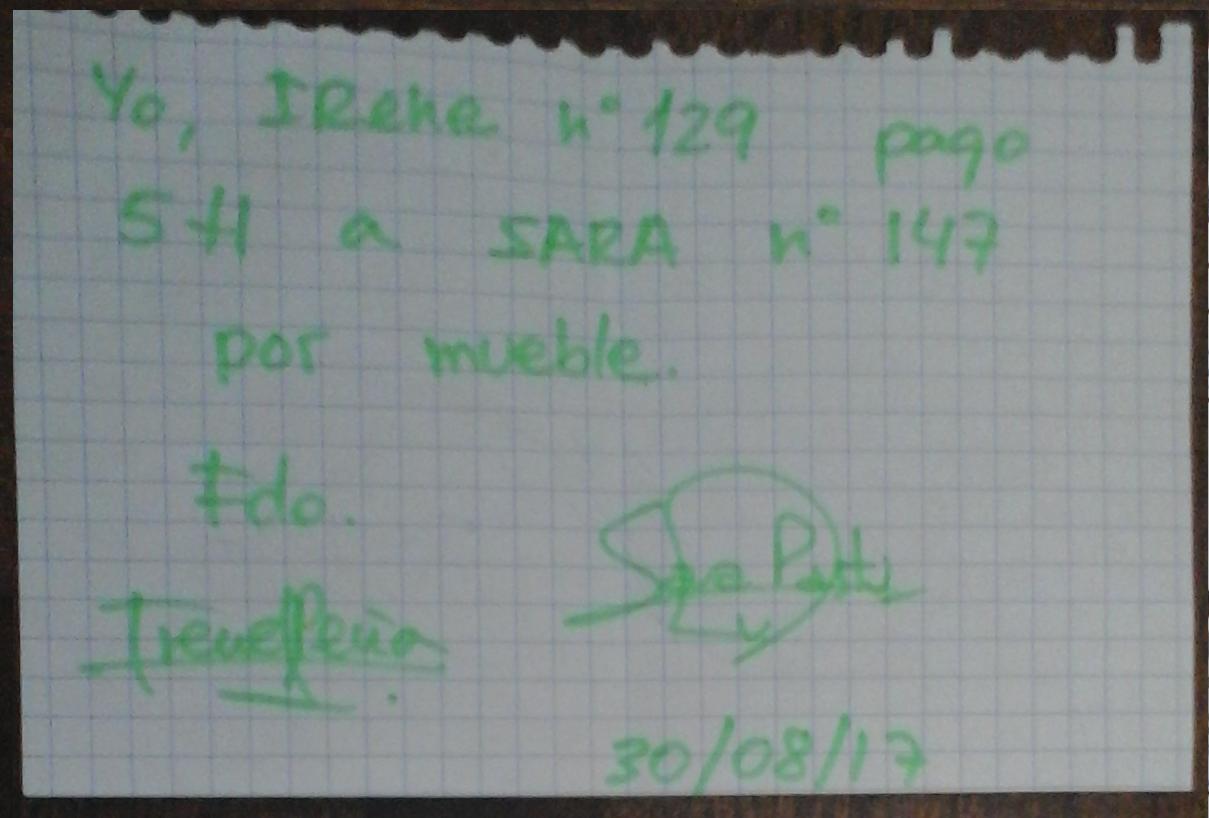 Yo, IRene n° 129 pago
5 H a SARA n° 147
por mueble.
Fdo.
Irene Peña
Sara
30/08/17